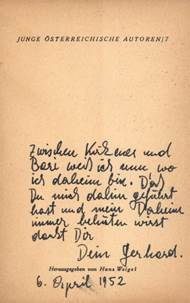 JUNGE ÖSTERREICHISCHE AUTOREN/7
Zwischen und
Base weiß ich nun wo
ich daheim bin. Daß
Du mich dahin geführt
hast und mein Daheim
immer behüten wirst
dankt Dir
Dein Gerhard.
Herausgegeben von Hans Weigel
6. April 1952